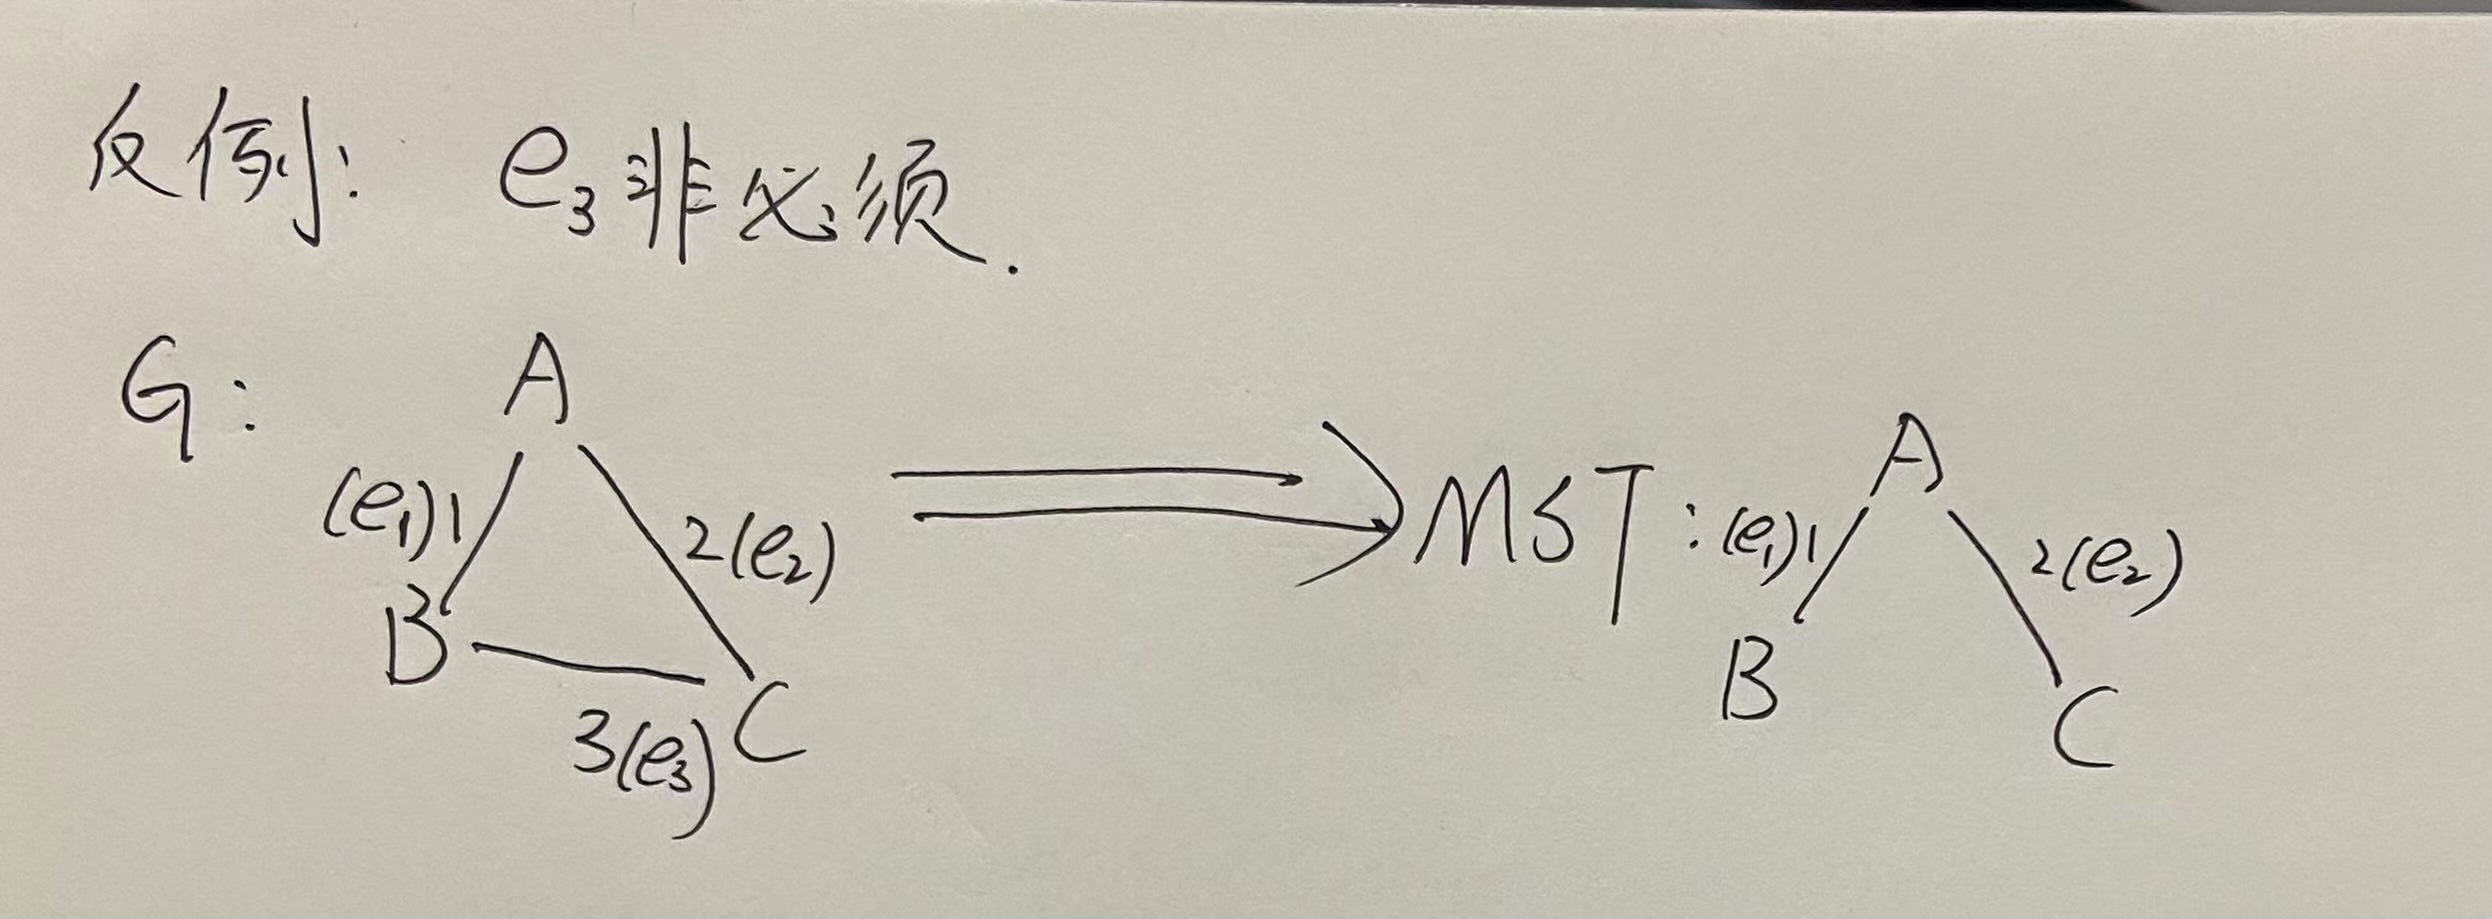 反例: e₃非必须.
G:
A
(e₁)1
2(e₂)
B
C
3(e₃)
MST:
A
(e₁)1
2(e₂)
B
C